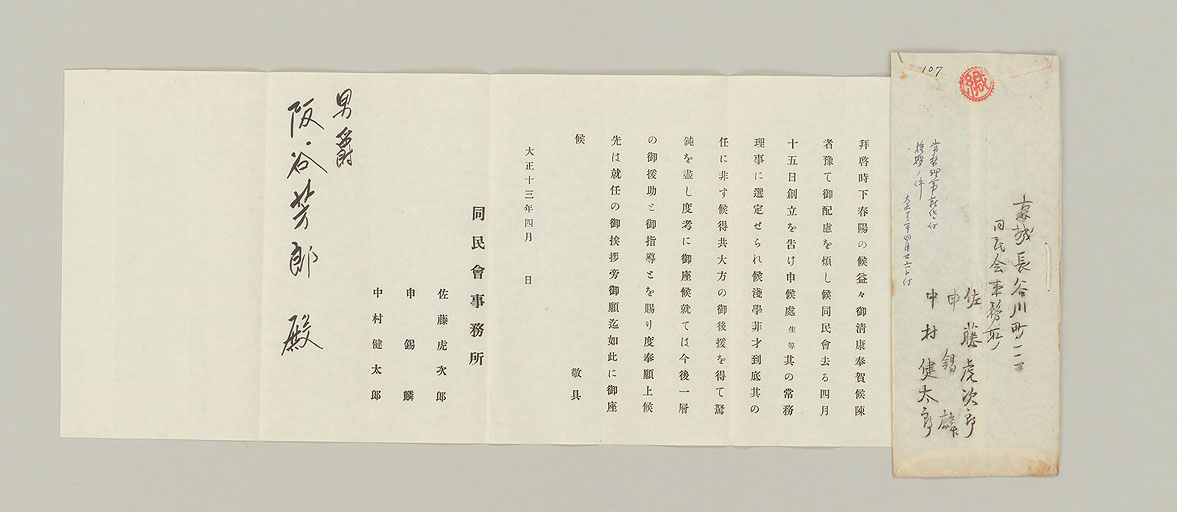 107
緘
常務理事就任ニ付
挨拶ノ件
京城長谷川町一一
同民会事務所
佐藤虎次郎
申錫麟
中村健太郎
拜啓時下春陽の候益々御清康奉賀候陳
者豫て御配慮を煩し候同民會去る四月
十五日創立を告け申候處生等其の常務
理事に選定せられ候淺學菲才到底其の
任に非す候得共大方の御後援を得て駑
鈍を盡し度考に御座候就ては今後一層
の御援助と御指導とを賜り度奉願上候
先は就任の御挨拶旁御願迄如此に御座
候 敬具
大正十三年四月 日
同民會事務所
佐藤虎次郎
申錫麟
中村健太郎
男爵
阪谷芳郎殿